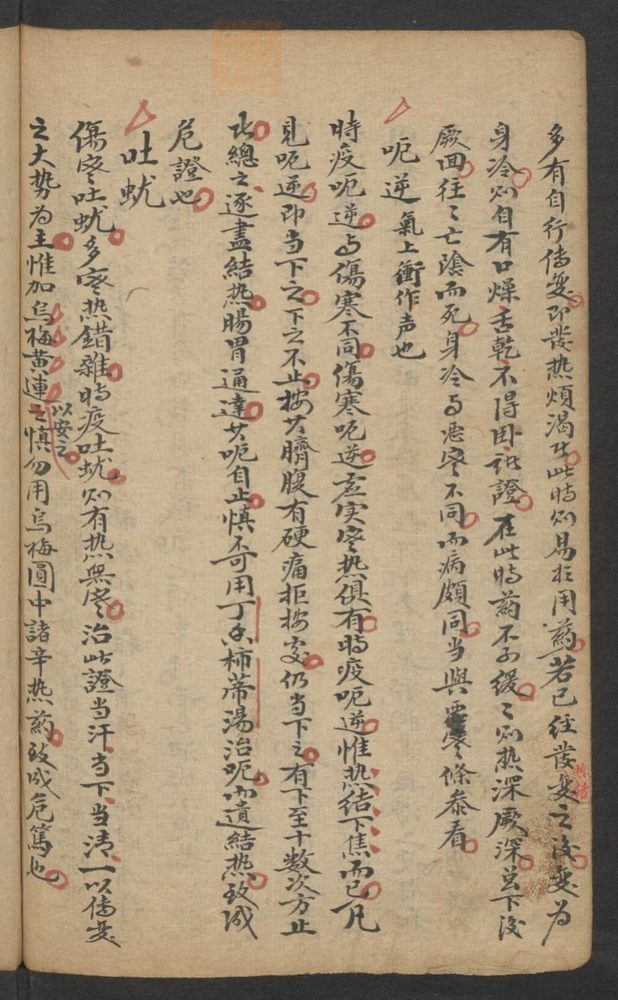 多有自行傳變即發热煩渴於此時犯易拒用藥若已往發熱之後變為
身冷必自有口燥舌乾不得卧諸證在此時藥不可緩〻則热深厥深㒷下後
厥回往〻亡陰而死身冷与惡寒不同而病頗同当與惡寒條參看
呃逆氣上衝作声也
時疫呃逆与傷寒不同傷寒呃逆虛实寒热俱有時疫呃逆惟热结下焦而已凡
見呃逆即当下之下之不止按其臍腹有硬痛拒按處仍当下之有下至十數次方止
此總之逐盡結热腸胃通達其呃自止慎不可用丁香柿蒂湯治呃而遺結热致成
危證也
吐蚘
傷寒吐蚘多寒热錯雜時疫吐蚘則有热無寒治此證当汗当下当清一以傳変
之大势為主惟加烏梅黄連以安之慎勿用烏梅圓中諸辛热藥致成危篤也